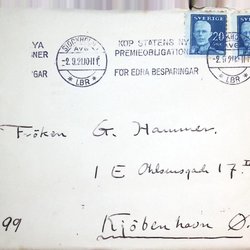 YA
NER
GAR
STOCKHOLM
AVG.
-2.9.21.10-11 F.
* LBR *
KÖP STATENS NY
PREMIEOBLIGATION
FÖR EDRA BESPARINGAR
SVERIGE
20
Fröken G. Hammer.
1 E Ohlsensgade 17 II
99
Kjöbenhavn Ø